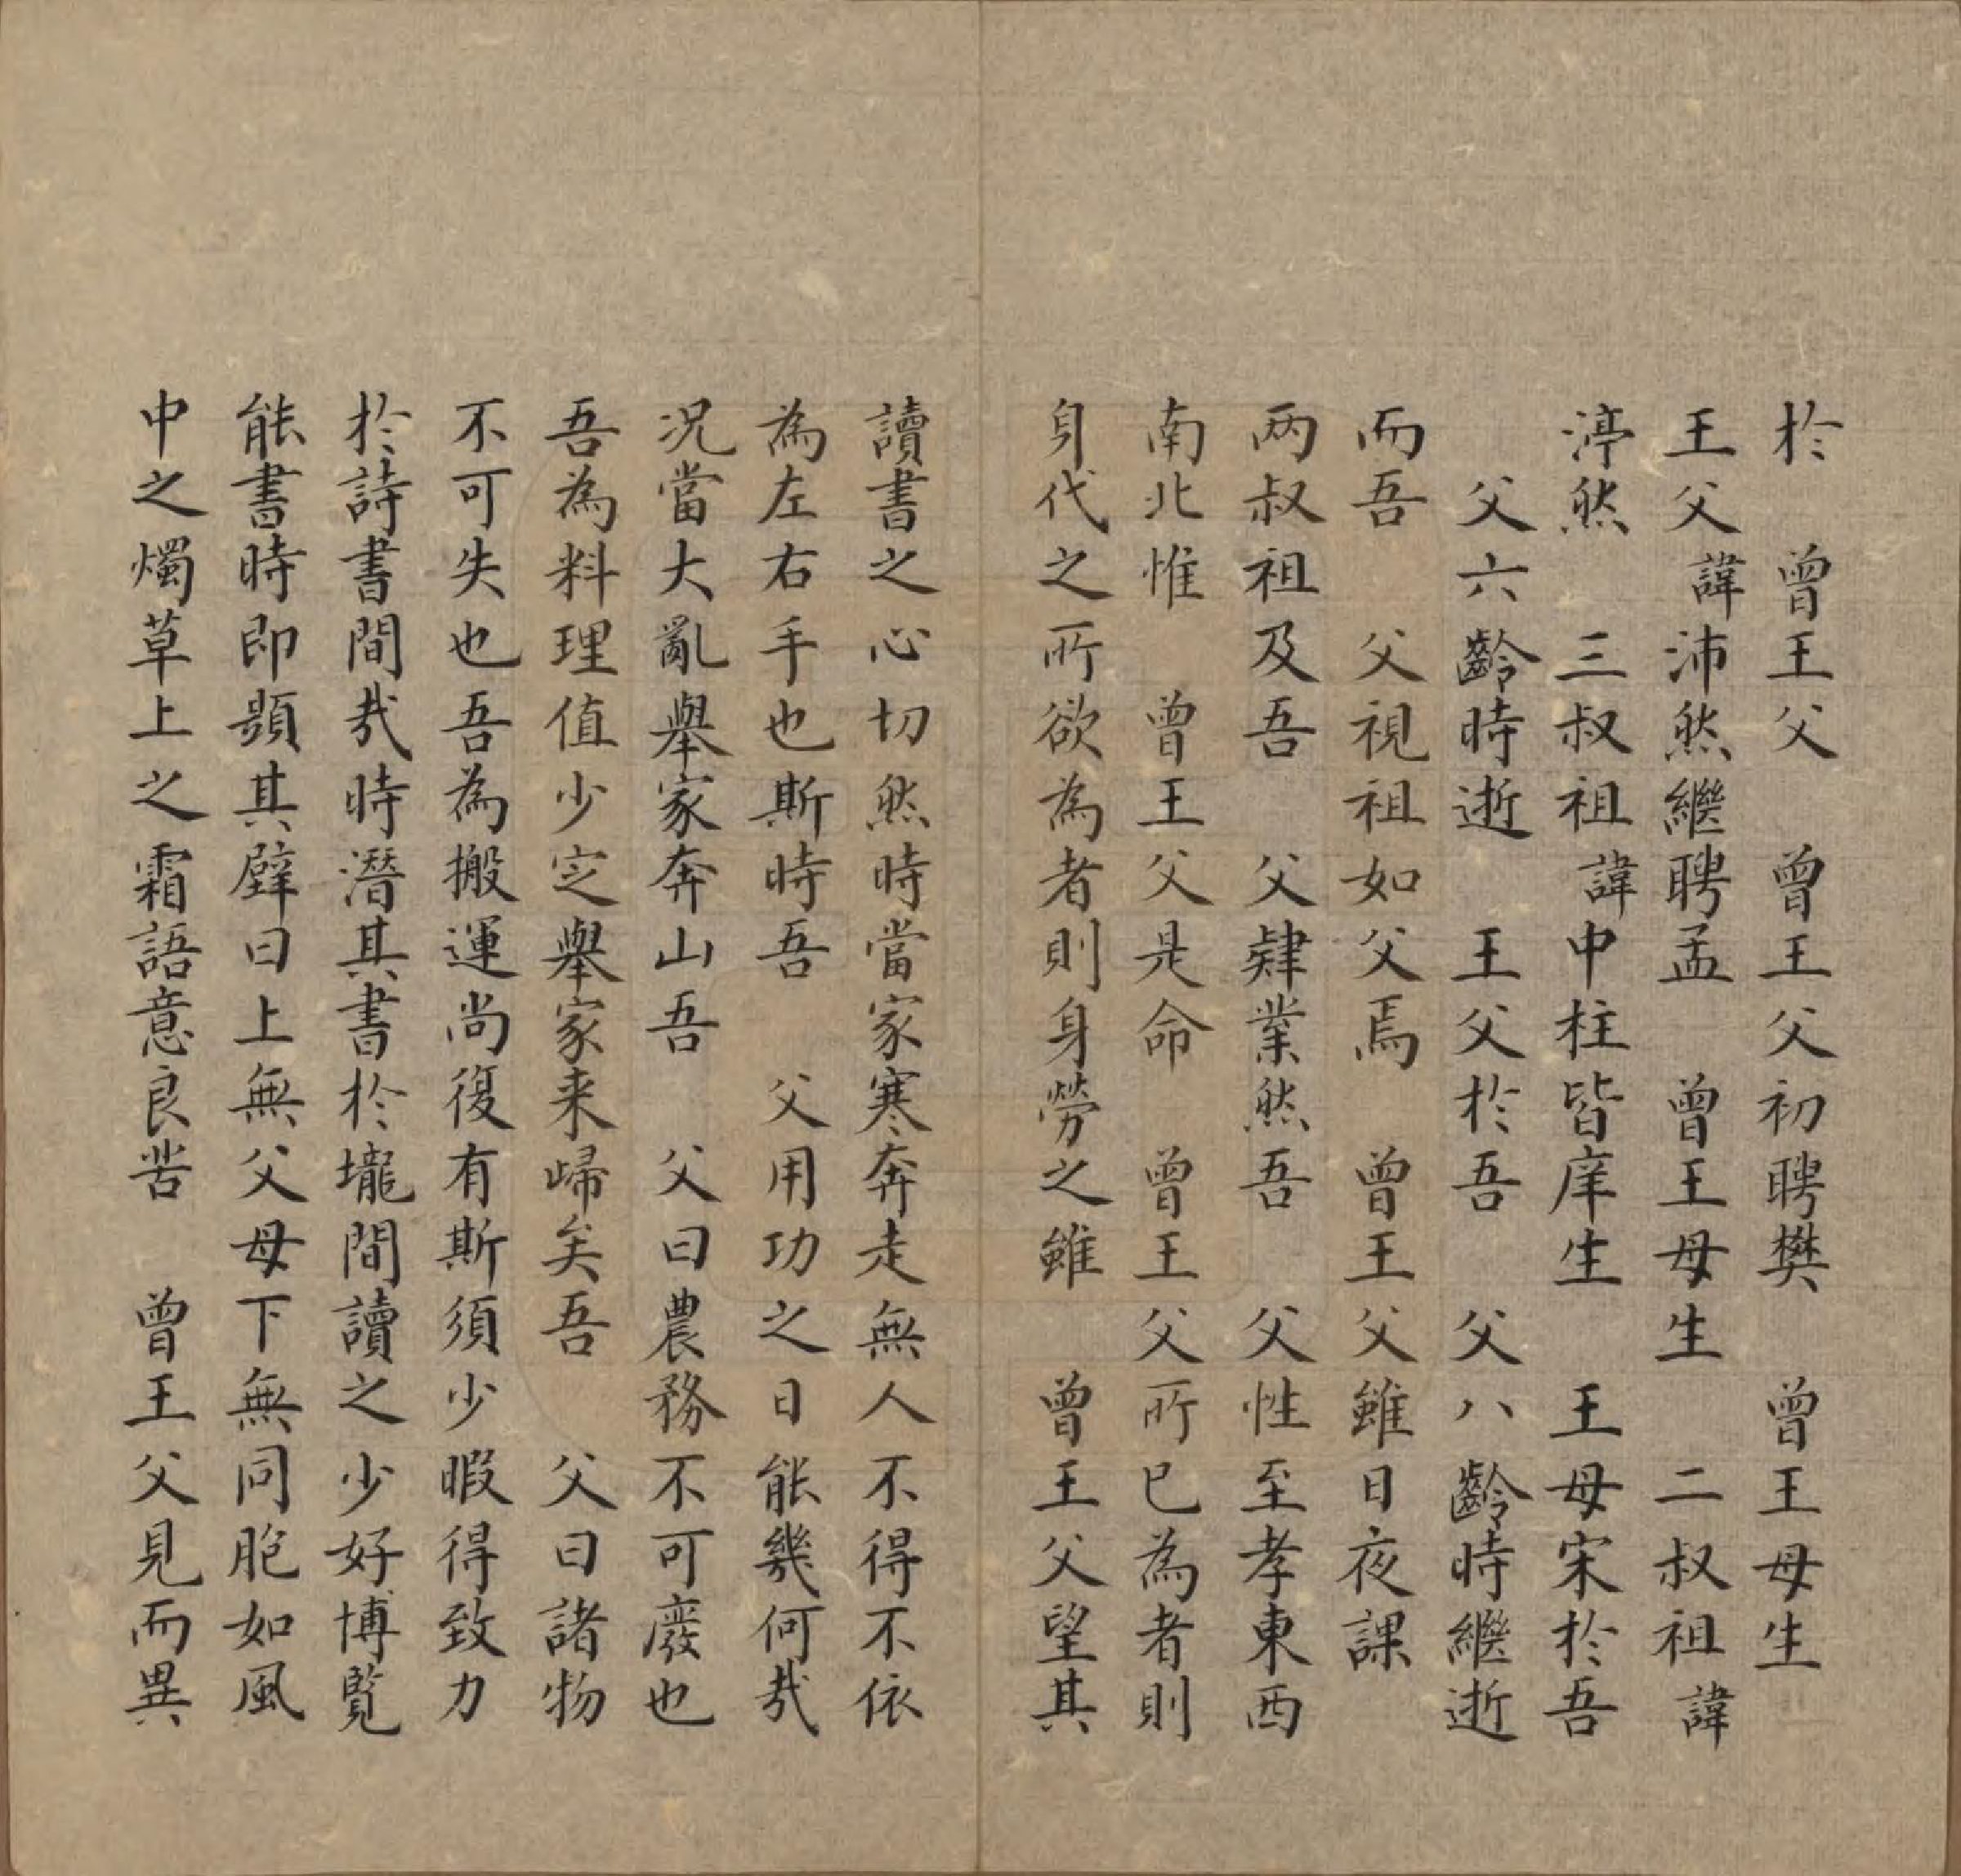 於　曾王父　曾王父初聘樊　曾王母生
王父諱沛然繼聘孟　曾王母生　二叔祖諱
渟然　三叔祖諱中柱皆庠生　王母宋於吾
父六齡時逝　王父於吾　父八齡時繼逝
而吾　父視祖如父焉　曾王父雖日夜課
兩叔祖及吾　父肄業然吾　父性至孝東西
南北惟　曾王父是命　曾王父所已為者則
身代之所欲為者則身勞之雖　曾王父望其
讀書之心切然時當家寒奔走無人不得不依
為左右手也斯時吾　父用功之日能幾何哉
況當大亂舉家奔山吾　父曰農務不可廢也
吾為料理值少定舉家来歸矣吾　父曰諸物
不可失也吾為搬運尚復有斯須少暇得致力
於詩書間哉時潛其書於壠間讀之少好博覧
能書時即顯其壁曰上無父母下無同胞如風
中之燭草上之霜語意良苦　曾王父見而異